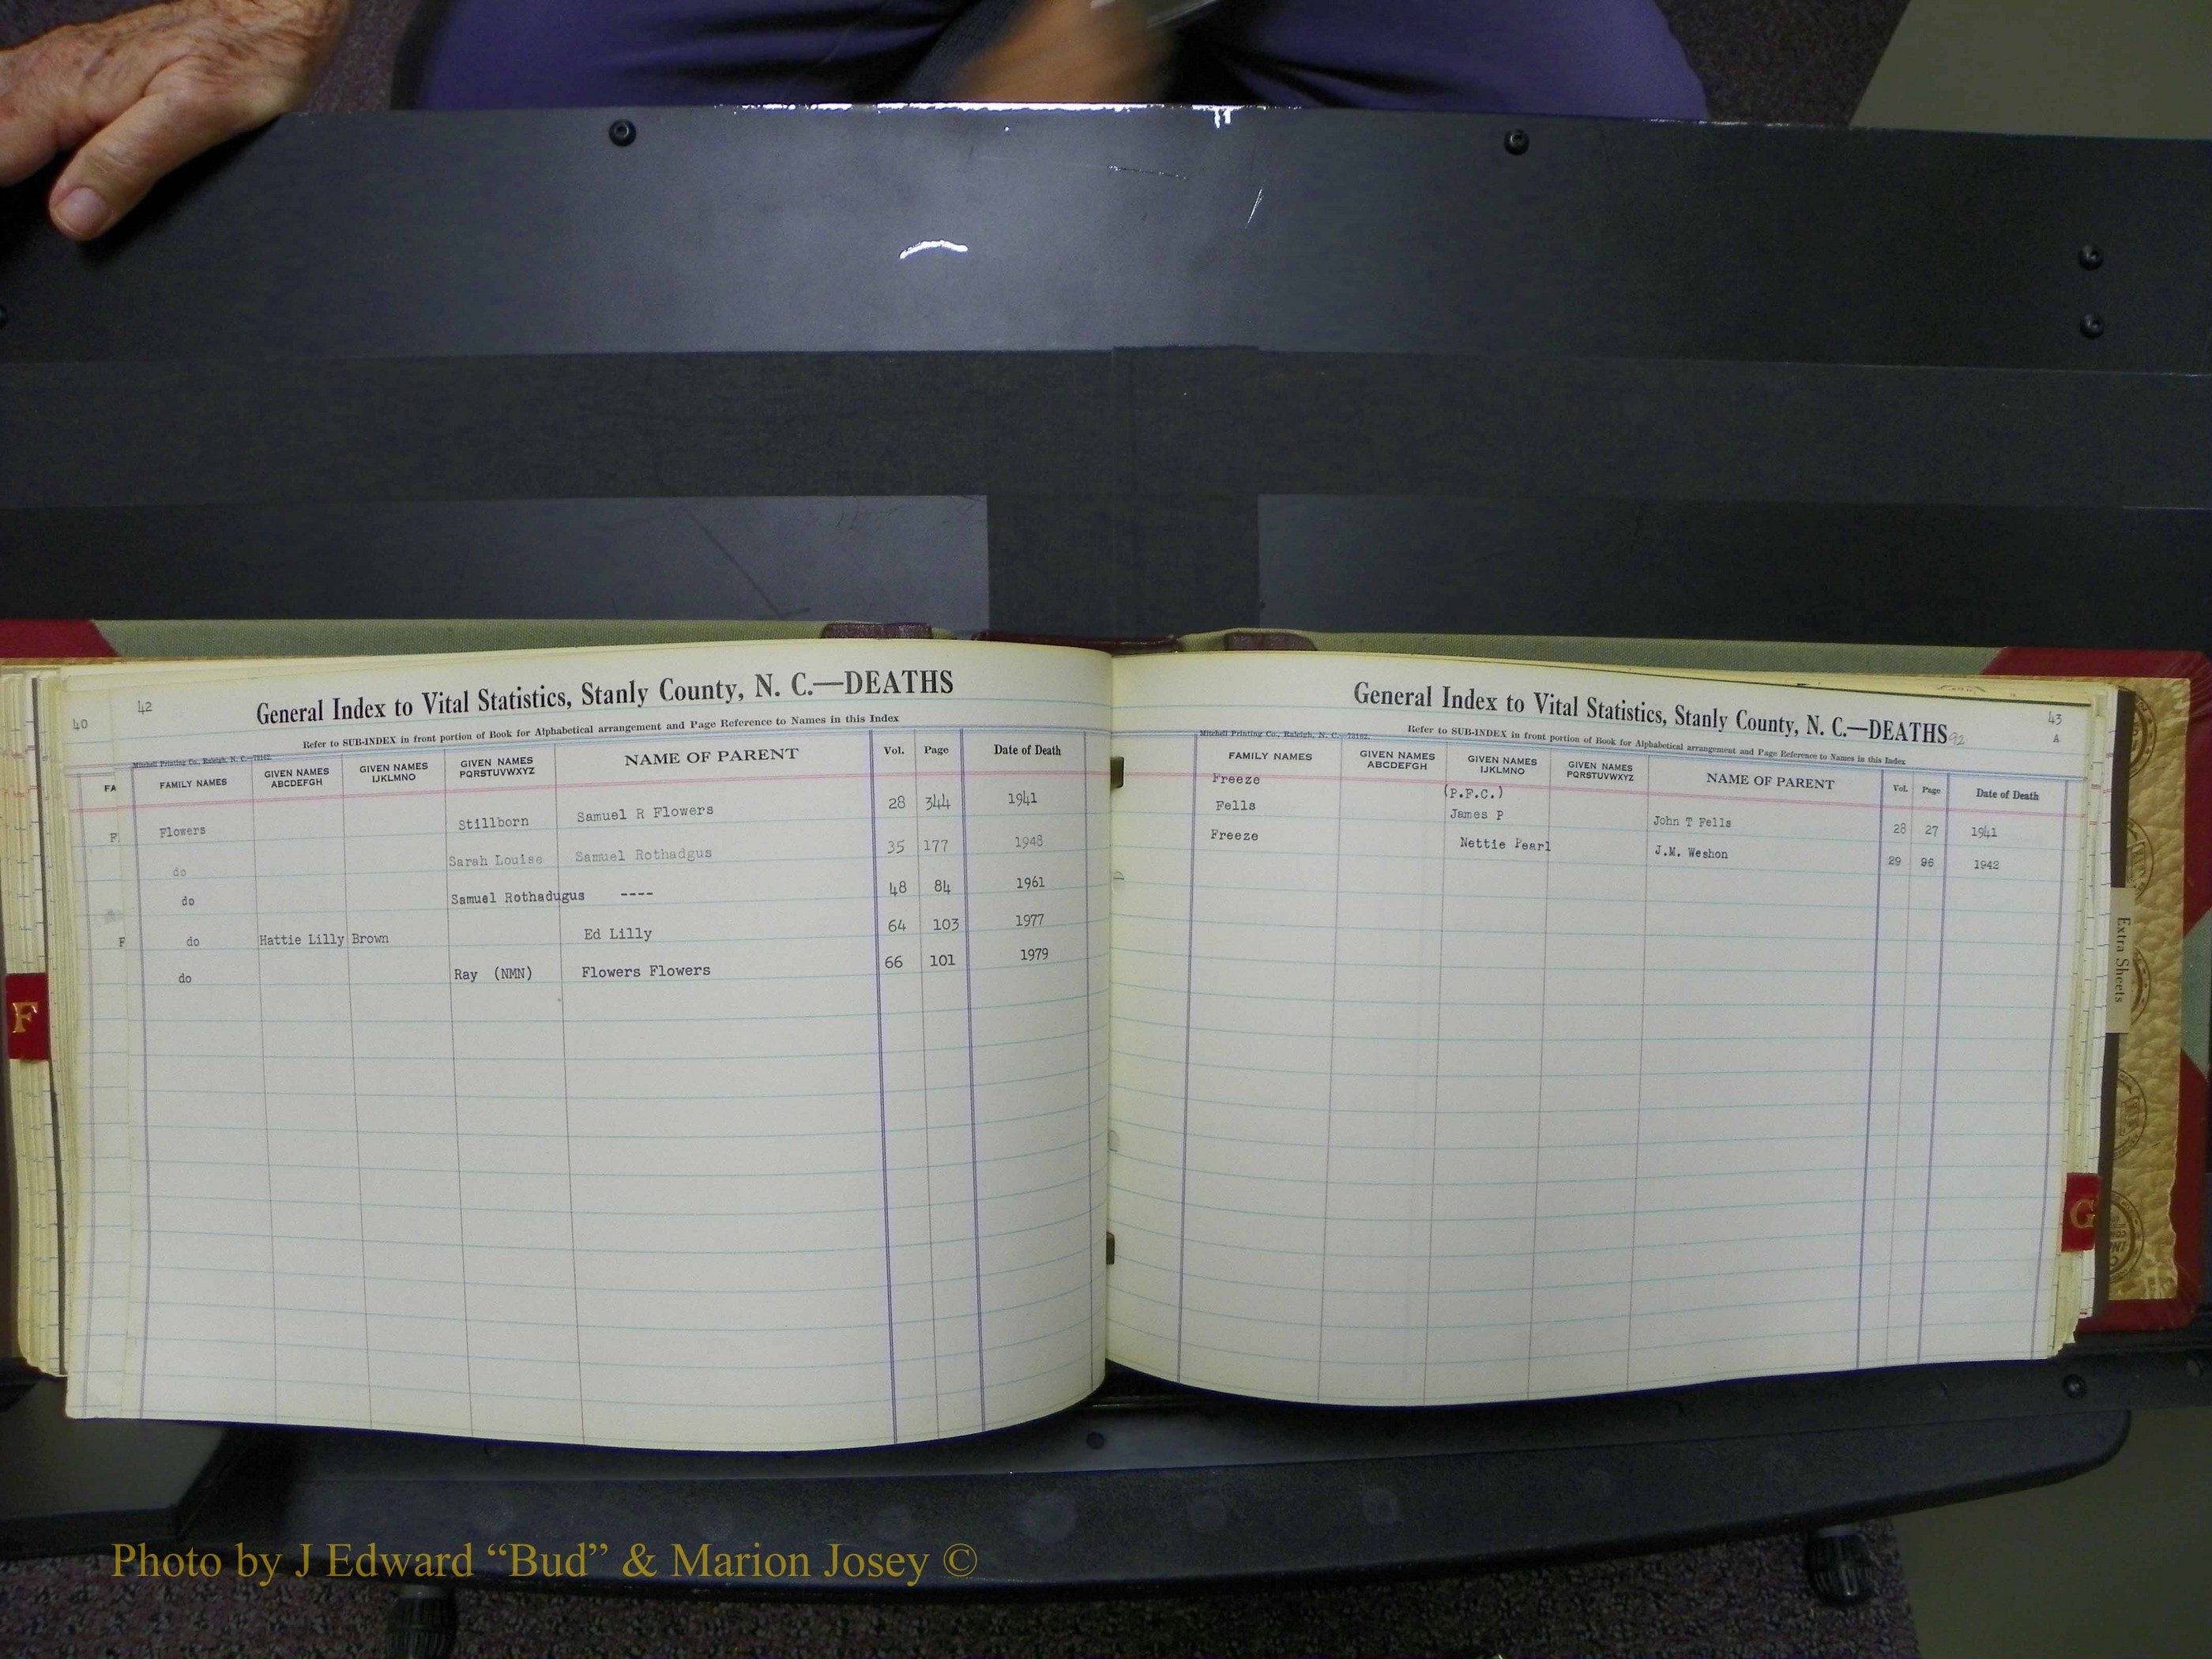 40
42
General Index to Vital Statistics, Stanly County, N. C.—DEATHS
Refer to SUB-INDEX in front portion of Book for Alphabetical arrangement and Page Reference to Names in this Index
Mitchell Printing Co., Raleigh, N. C.—72182.
FA FAMILY NAMES GIVEN NAMES ABCDEFGH GIVEN NAMES IJKLMNO GIVEN NAMES PQRSTUVWXYZ NAME OF PARENT Vol. Page Date of Death
F Flowers Stillborn Samuel R Flowers 28 344 1941
do Sarah Louise Samuel Rothadgus 35 177 1948
do Samuel Rothadugus ---- 48 84 1961
F do Hattie Lilly Brown Ed Lilly 64 103 1977
do Ray (NMN) Flowers Flowers 66 101 1979
F
General Index to Vital Statistics, Stanly County, N. C.—DEATHS 92
43
A
Refer to SUB-INDEX in front portion of Book for Alphabetical arrangement and Page Reference to Names in this Index
Mitchell Printing Co., Raleigh, N. C.—72182.
FAMILY NAMES GIVEN NAMES ABCDEFGH GIVEN NAMES IJKLMNO GIVEN NAMES PQRSTUVWXYZ NAME OF PARENT Vol. Page Date of Death
Freeze (P.F.C.)
Fells James P John T Fells 28 27 1941
Freeze Nettie Pearl J.M. Weshon 29 96 1942
Extra Sheets
G
Photo by J Edward “Bud” & Marion Josey ©